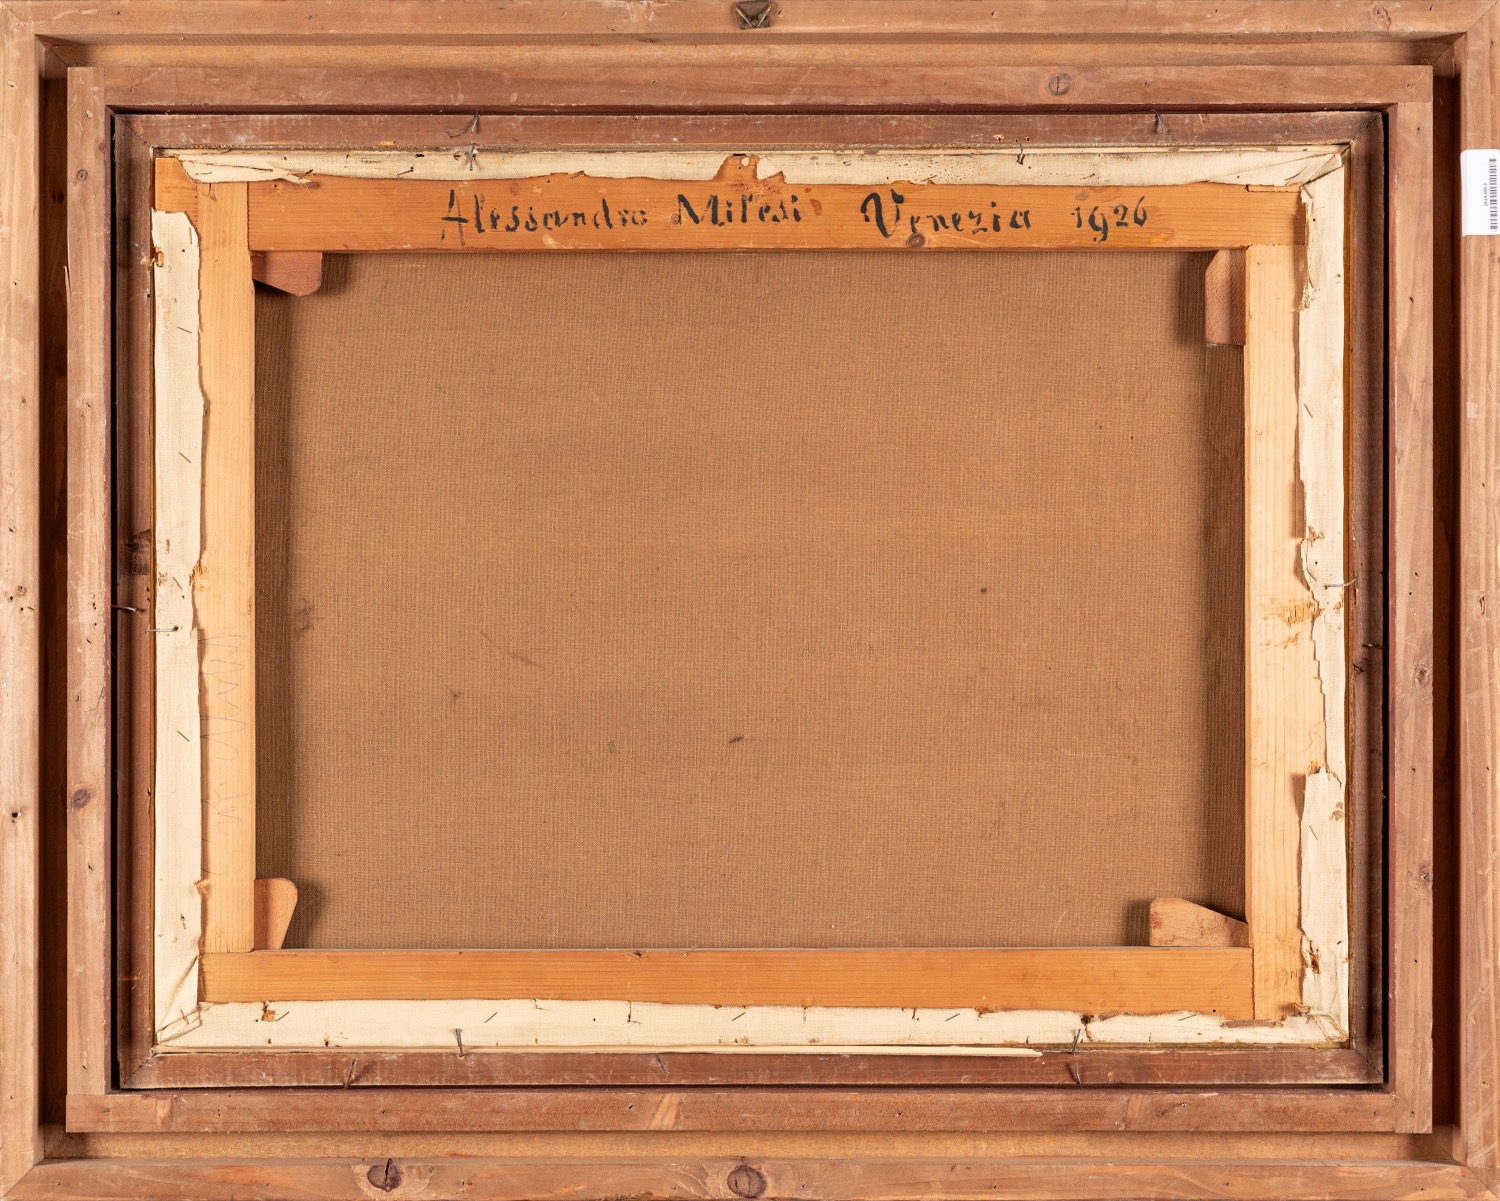 Alessandro Milesi Venezia 1926